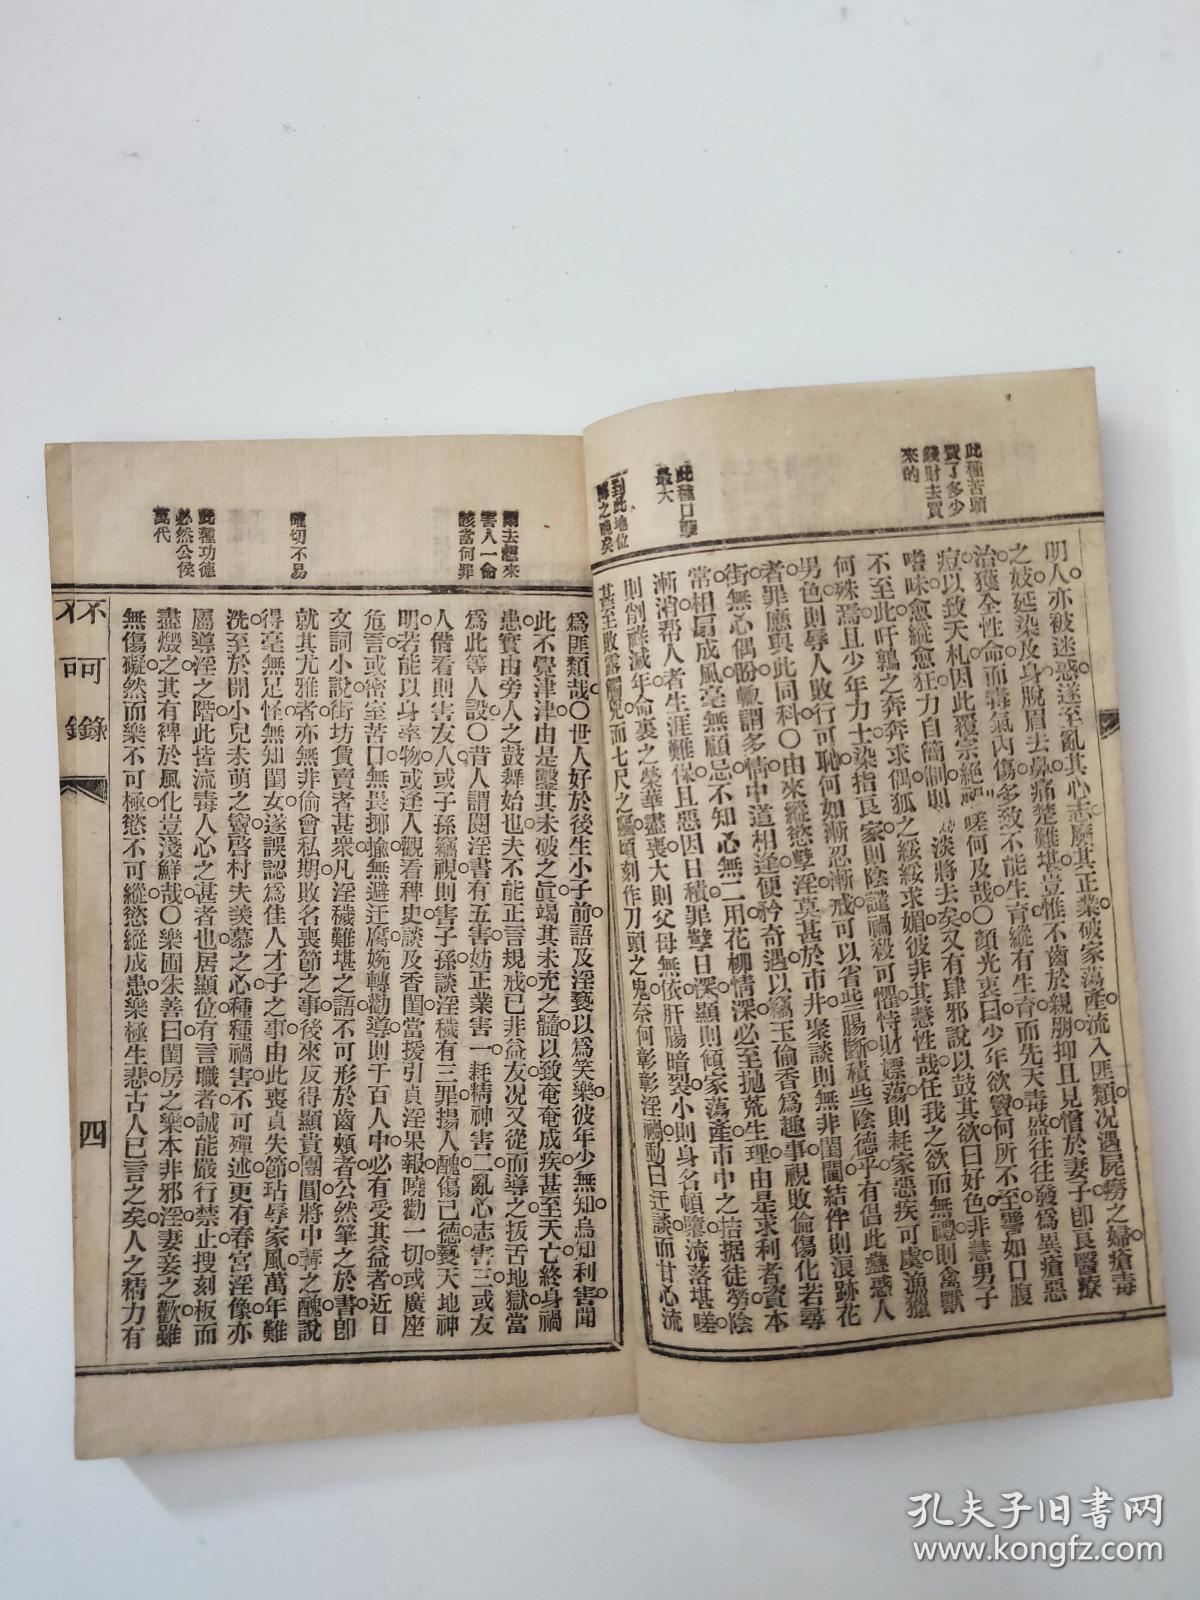 此種苦頭
費了多少
錢財去買
來的
此種口孽
最大
到此地位
悔之晚矣
明人亦被迷惑遂至亂其心志廢其正業破家蕩產流入匪類況遇屍癆之婦瘡毒
之妓延染及身脫眉去鼻痛楚難堪豈惟不齒於親朋抑且見憎於妻子卽良醫療
治獲全性命而毒氣內傷多致不能生育縱有生育而先天毒盛往往發爲異瘡惡
痘以致夭札因此覆宗絕祀嗟何及哉○顏光衷曰少年欲竇何所不至譬如口腹
嗜味愈縱愈狂力自簡制則淡將去矣又有肆邪說以鼓其欲曰好色非慧男子
不至此吁鶉之奔奔求偶狐之綏綏求媚彼非其慧性哉任我之欲而無禮則禽獸
何殊焉且少年力士染指良家則陰譴禍殺可懼恃財嫖蕩則耗家惡疾可虞漁獵
男色則辱人敗行可恥何如漸忍漸戒可以省些腸斷積些陰德乎有倡此蠱惑人
者罪應與此同科○由來縱慾孽淫莫甚於市井聚談則無非閨閫結伴則浪跡花
街無心偶盼輒謂多情中道相逢便矜奇遇以竊玉偷香爲趣事視敗倫傷化若尋
常相扇成風毫無顧忌不知心無二用花柳情深必至抛荒生理由是求利者資本
漸消幇人者生涯難保且惡因日積罪孽日深顯則傾家蕩產市中之拮据徒勞陰
則削祿減年命裏之榮華盡喪大則父母無依肝腸暗裂小則身名頓隳流落堪嗟
甚至敗露觸兇而七尺之軀頃刻作刀頭之鬼奈何彰彰淫禍動曰迂談而甘心流
爾去想來
害人一命
該當何罪
確切不易
此種功德
必然公侯
萬代
爲匪類哉○世人好於後生小子前語及淫褻以爲笑樂彼年少無知烏知利害聞
此不覺津津由是鑿其未破之眞竭其未充之髓以致奄奄成疾甚至夭亡終身禍
患實由旁人之鼓舞始也夫不能正言規戒已非益友況又從而導之扳舌地獄當
爲此等人設○昔人謂閱淫書有五害妨正業害一耗精神害二亂心志害三或友
人借看則害友人或子孫竊視則害子孫談淫穢有三罪揚人醜傷已德褻天地神
明若能以身率物或逢人觀看稗史談及香閨當援引貞淫果報曉勸一切或廣座
危言或密室苦口無畏揶揄無避迂腐婉轉勸導則千百人中必有受其益者近日
文詞小說街坊賃賣者甚衆凡淫穢難堪之語不可形於齒頰者公然筆之於書卽
就其尤雅者亦無非偷會私期敗名喪節之事後來反得顯貴團圓將中冓之醜說
得毫無足怪無知閨女遂誤認爲佳人才子之事由此喪貞失節玷辱家風萬年難
洗至於開小兒未萌之竇啓村夫羡慕之心種種禍害不可殫述更有春宮淫像亦
屬導淫之階此皆流毒人心之甚者也居顯位有言職者誠能嚴行禁止搜刻板而
盡燬之其有裨於風化豈淺鮮哉○樂圃朱善曰閨房之樂本非邪淫妻妾之歡雖
無傷礙然而樂不可極慾不可縱慾縱成患樂極生悲古人已言之矣人之精力有
不可錄
四
孔夫子旧书网
www.kongfz.com